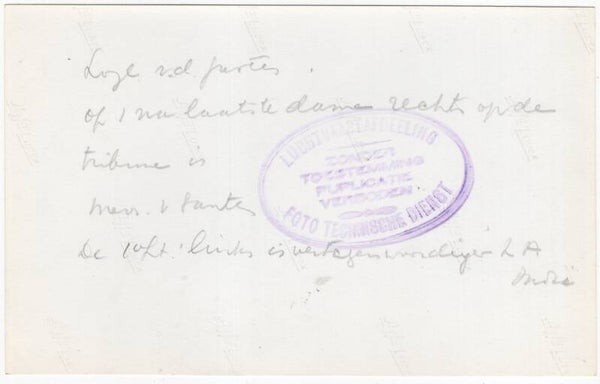 Loge v.d. gasten.
op 1 na laatste dame rechts op de
tribune is
mevr. v Santen
De links is vertegenwoordiger L A
Indië
LUCHTVAARTAFDEELING
ZONDER
TOESTEMMING
PUPLICATIE
VERBODEN
FOTO TECHNISCHE DIENST